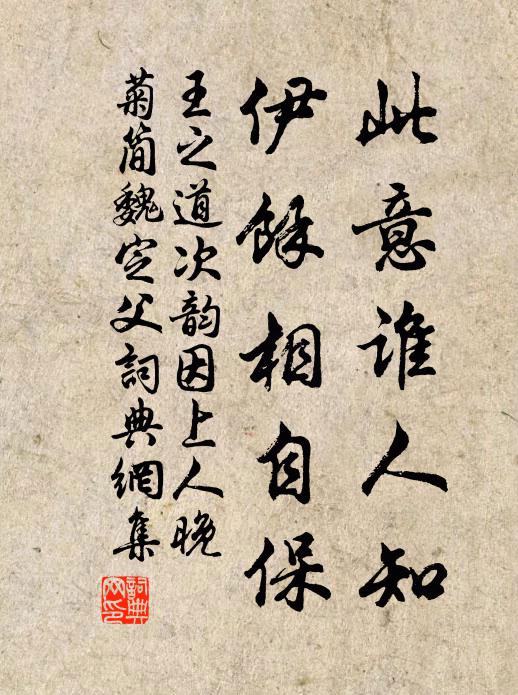 此意谁人知
伊馀相自保
王之道次韵因上人晚
菊简魏定父詞典網集
詞典網印